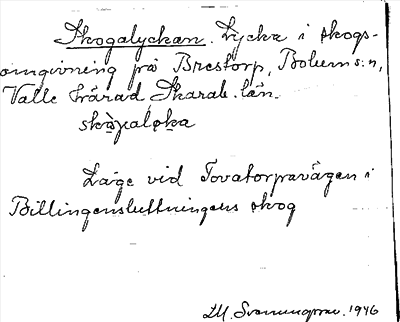 Skogalyckan. Lycka i skogs-
omgivning på Brestorp, Bolums:n,
Valle härad, Skarab. län.
Läge vid Tovatorpavägen i
Billingensluttningens skog
1946